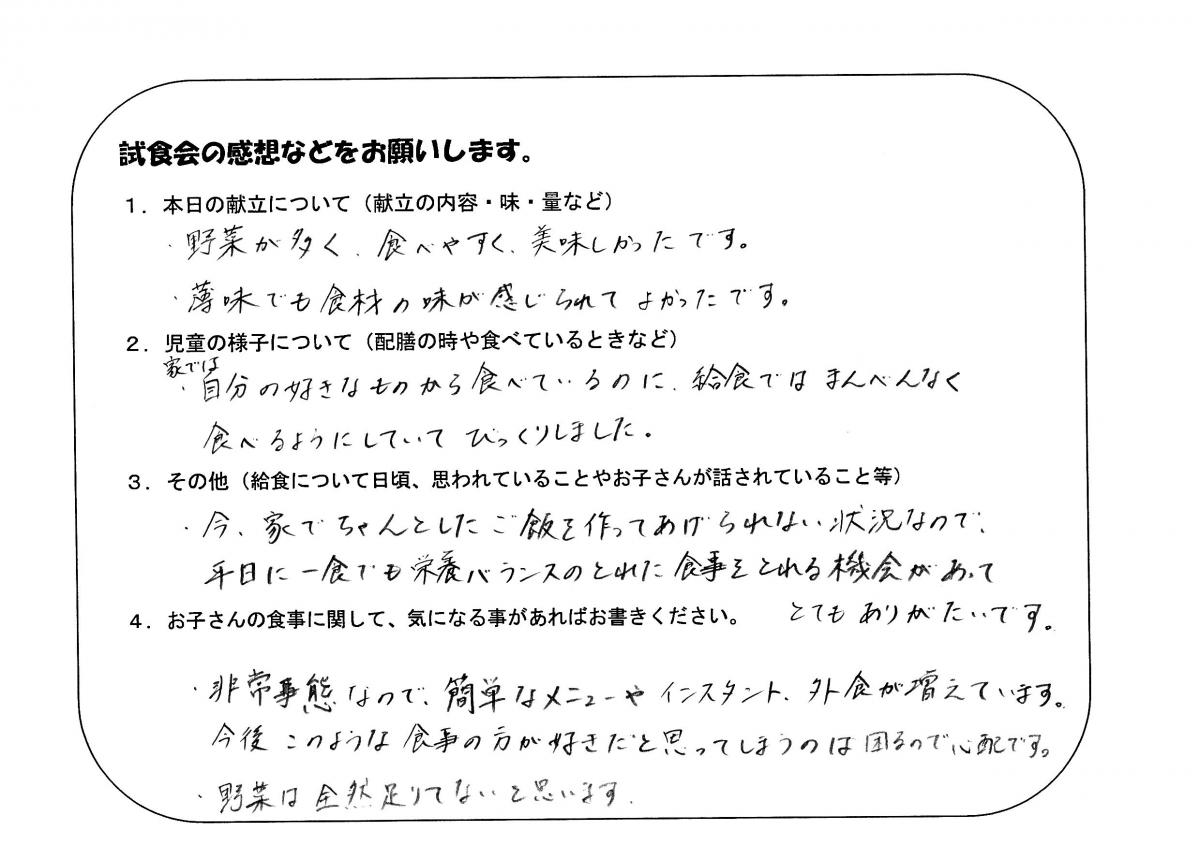 試食会の感想などをお願いします。
１．本日の献立について（献立の内容・味・量など）
・野菜が多く、食べやすく、美味しかったです。
・薄味でも食材の味が感じられてよかったです。
２．児童の様子について（配膳の時や食べているときなど）
家では
・自分の好きなものから食べているのに、給食ではまんべんなく
食べるようにしていてびっくりしました。
３．その他（給食について日頃、思われていることやお子さんが話されていること等）
・今、家でちゃんとしたご飯を作ってあげられない状況なので、
平日に一食でも栄養バランスのとれた食事をとれる機会があって
とてもありがたいです。
４．お子さんの食事に関して、気になる事があればお書きください。
・非常事態なので、簡単なメニューやインスタント、外食が増えています。
今後このような食事の方が好きだと思ってしまうのは困るので心配です。
・野菜は全然足りてないと思います。